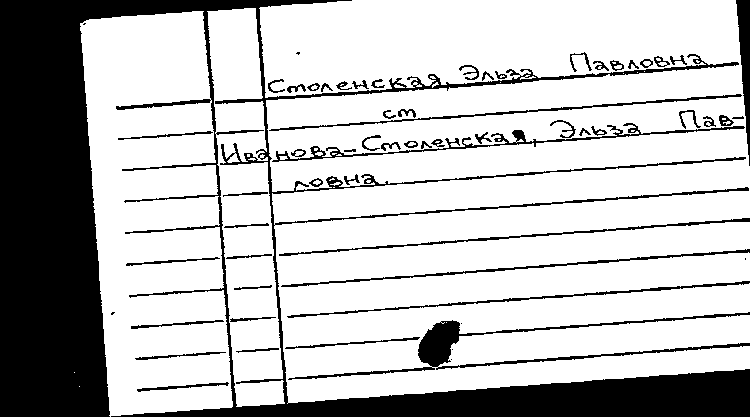 Столенская, Эльза Павловна
ст
Иванова-Столенская, Эльза Пав-
ловна.